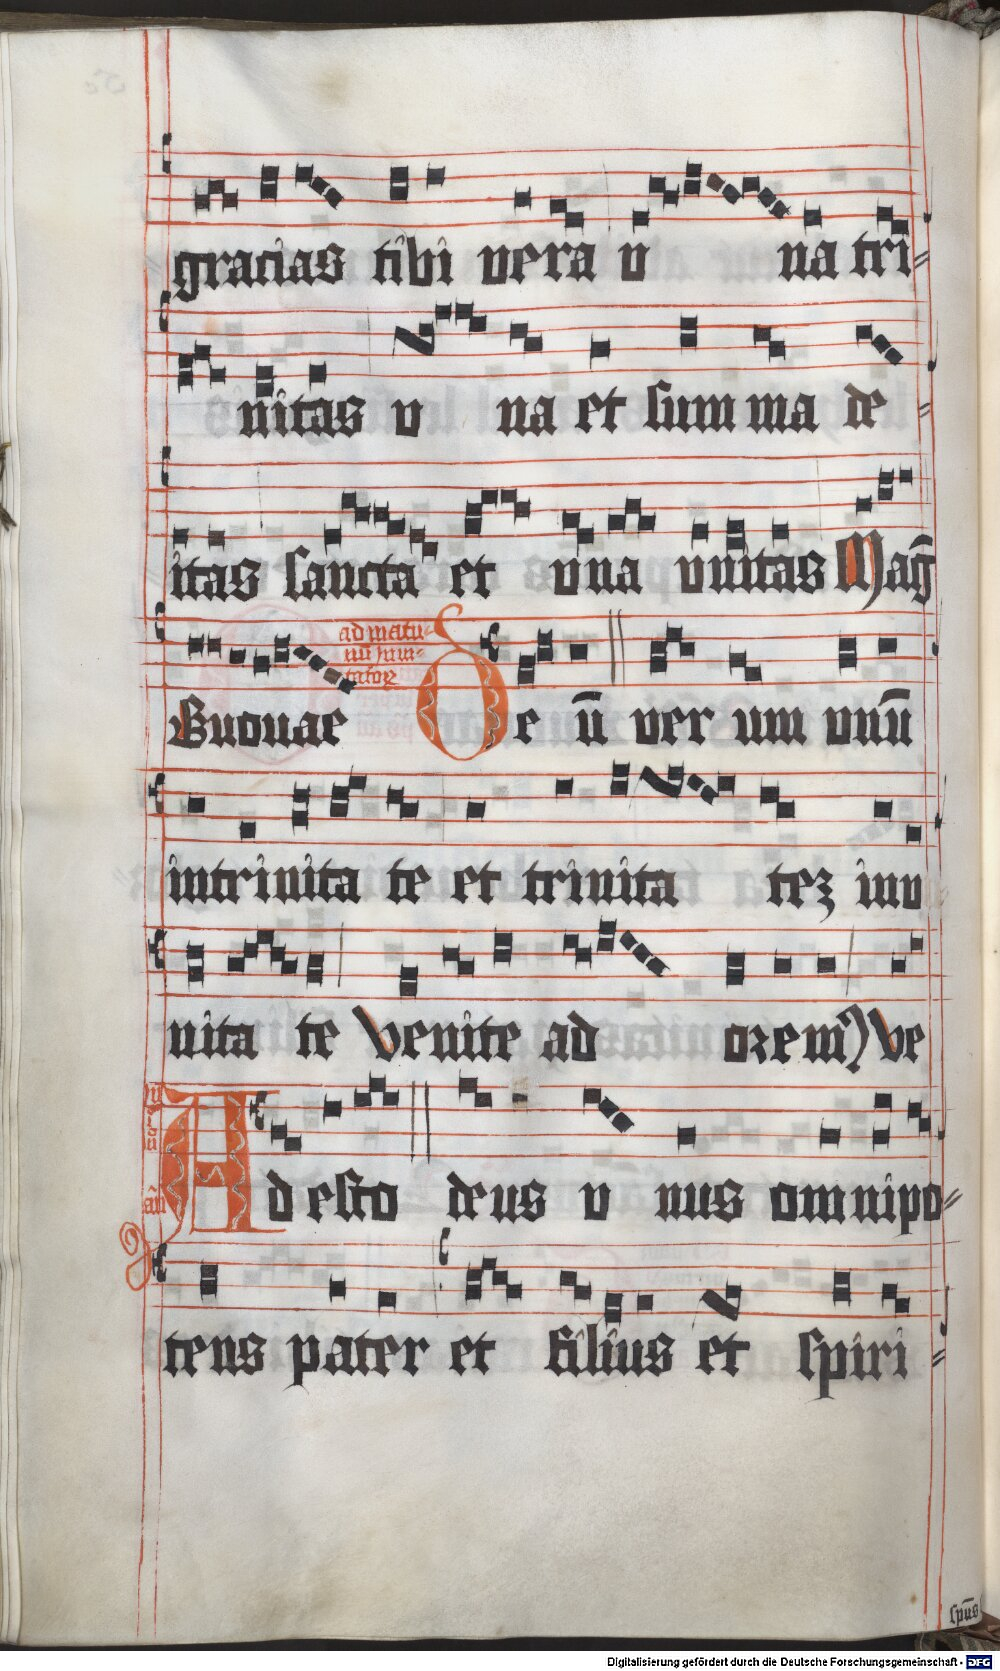 gracias tibi vera v na tri=
nitas v na et sum ma de =
itas sancta et vna vnitas Mag̅
Euouae
ad matu=
De u̅ ver um vnu̅
intrinita te et trinita tez inv
nita te Venite ad orem Ve
Adesto deus v nus omnipo=
tens pater et filius et spiri =
spu̅s
Digitalisierung gefördert durch die Deutsche Forschungsgemeinschaft - DFG